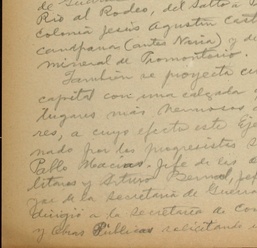 de Guerra
Rio al Rodeo, del Salto a D
colonia Jesús Agustín Cast
candpana (antes Naria) y de
mineral de Promontorio.
También se proyecta cu
capital con una calzada y
lugares más hermosos
res, a cuyo efecto este Eje
nado por los progresistas S
Pablo Macias, Jefe de las o
litares y Arturo Bernal, jef
zas de la Secretaría de Guerra
dirigió a la Secretaría de Com
y Obras Públicas solicitando